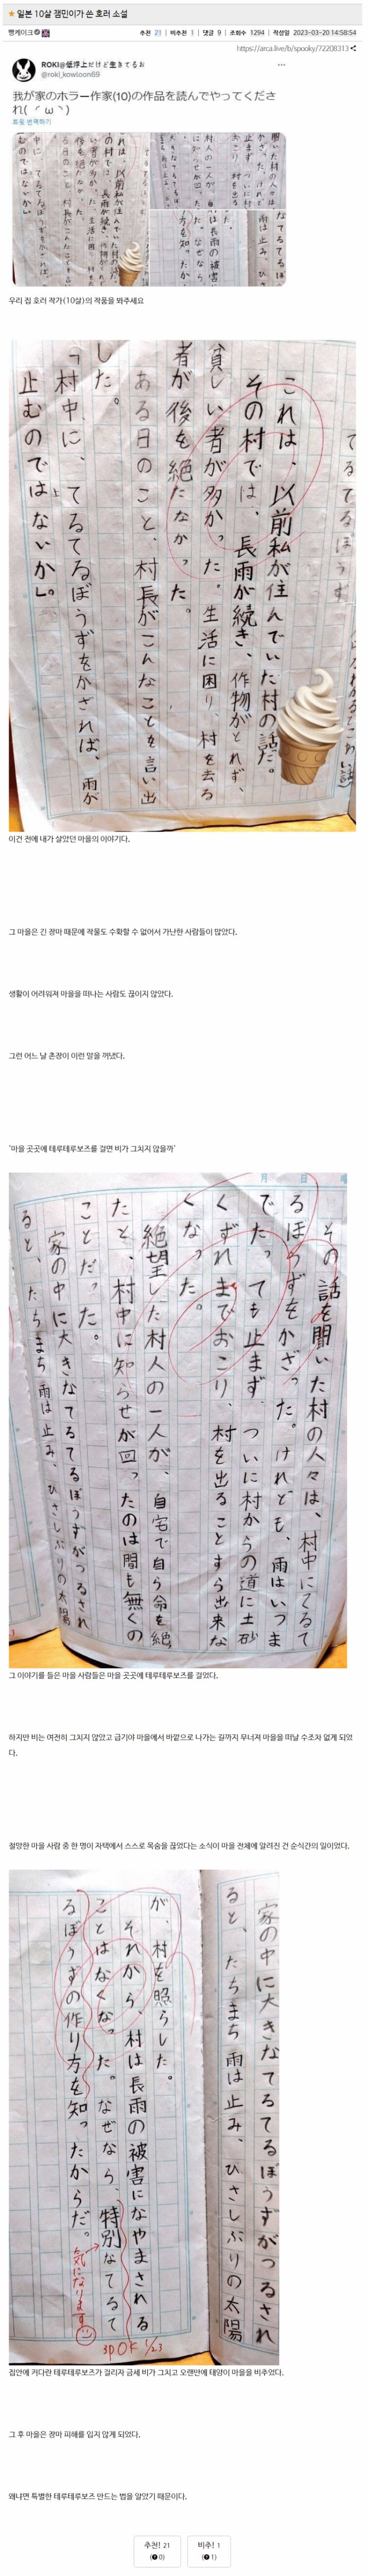 ★ 일본 10살 잼민이가 쓴 호러 소설
빵케이크
추천 21 | 비추천 1 | 댓글 9 | 조회수 1294 | 작성일 2023-03-20 14:58:54
https://arca.live/b/spooky/72208313
ROKI@低浮上だけど生きてるお
@roki_kowloon69
我が家のホラー作家(10)の作品を読んでやってくださ
れ( ´ω`)
트윗 번역하기
우리 집 호러 작가(10살)의 작품을 봐주세요
てるてるぼうず
これは、以前私が住んでいた村の話だ。
その村では、長雨が続き、作物がとれず、
貧しい者が多かった。生活に困り、村を去る
者が後を絶たなかった。
ある日のこと、村長がこんなことを言い出
した。
「村中に、てるてるぼうずをかざれば、雨が
止むのではないか」。
이건 전에 내가 살았던 마을의 이야기다.
그 마을은 긴 장마 때문에 작물도 수확할 수 없어서 가난한 사람들이 많았다.
생활이 어려워져 마을을 떠나는 사람도 끊이지 않았다.
그런 어느 날 촌장이 이런 말을 꺼냈다.
'마을 곳곳에 테루테루보즈를 걸면 비가 그치지 않을까'
月 日
その話を聞いた村の人々は、村中にてるて
るぼうずをかざった。けれども、雨はいつま
でたっても止まず、ついに村からの道に土砂
くずれまでおこり、村を出ることすら出来な
くなった。
絶望した村人の一人が、自宅で自ら命を絶
たと、村中に知らせが回ったのは間も無くの
ことだった。
家の中に大きなてるてるぼうずがつるされ
ると、たちまち雨は止み、ひさしぶりの太陽
그 이야기를 들은 마을 사람들은 마을 곳곳에 테루테루보즈를 걸었다.
하지만 비는 여전히 그치지 않았고 급기야 마을에서 바깥으로 나가는 길까지 무너져 마을을 떠날 수조차 없게 되었
다.
절망한 마을 사람 중 한 명이 자택에서 스스로 목숨을 끊었다는 소식이 마을 전체에 알려진 건 순식간의 일이었다.
家の中に大きなてるてるぼうずがつるされ
ると、たちまち雨は止み、ひさしぶりの太陽
が、村を照らした。
それから、村は長雨の被害になやまされる
ことはなくなった。なぜなら、特別なてるて
るぼうずの作り方を知ったからだ。
気になります
3D OK 1/23
집안에 커다란 테루테루보즈가 걸리자 금세 비가 그치고 오랜만에 태양이 마을을 비추었다.
그 후 마을은 장마 피해를 입지 않게 되었다.
왜냐면 특별한 테루테루보즈 만드는 법을 알았기 때문이다.
추천! 21
(0)
비추! 1
(1)